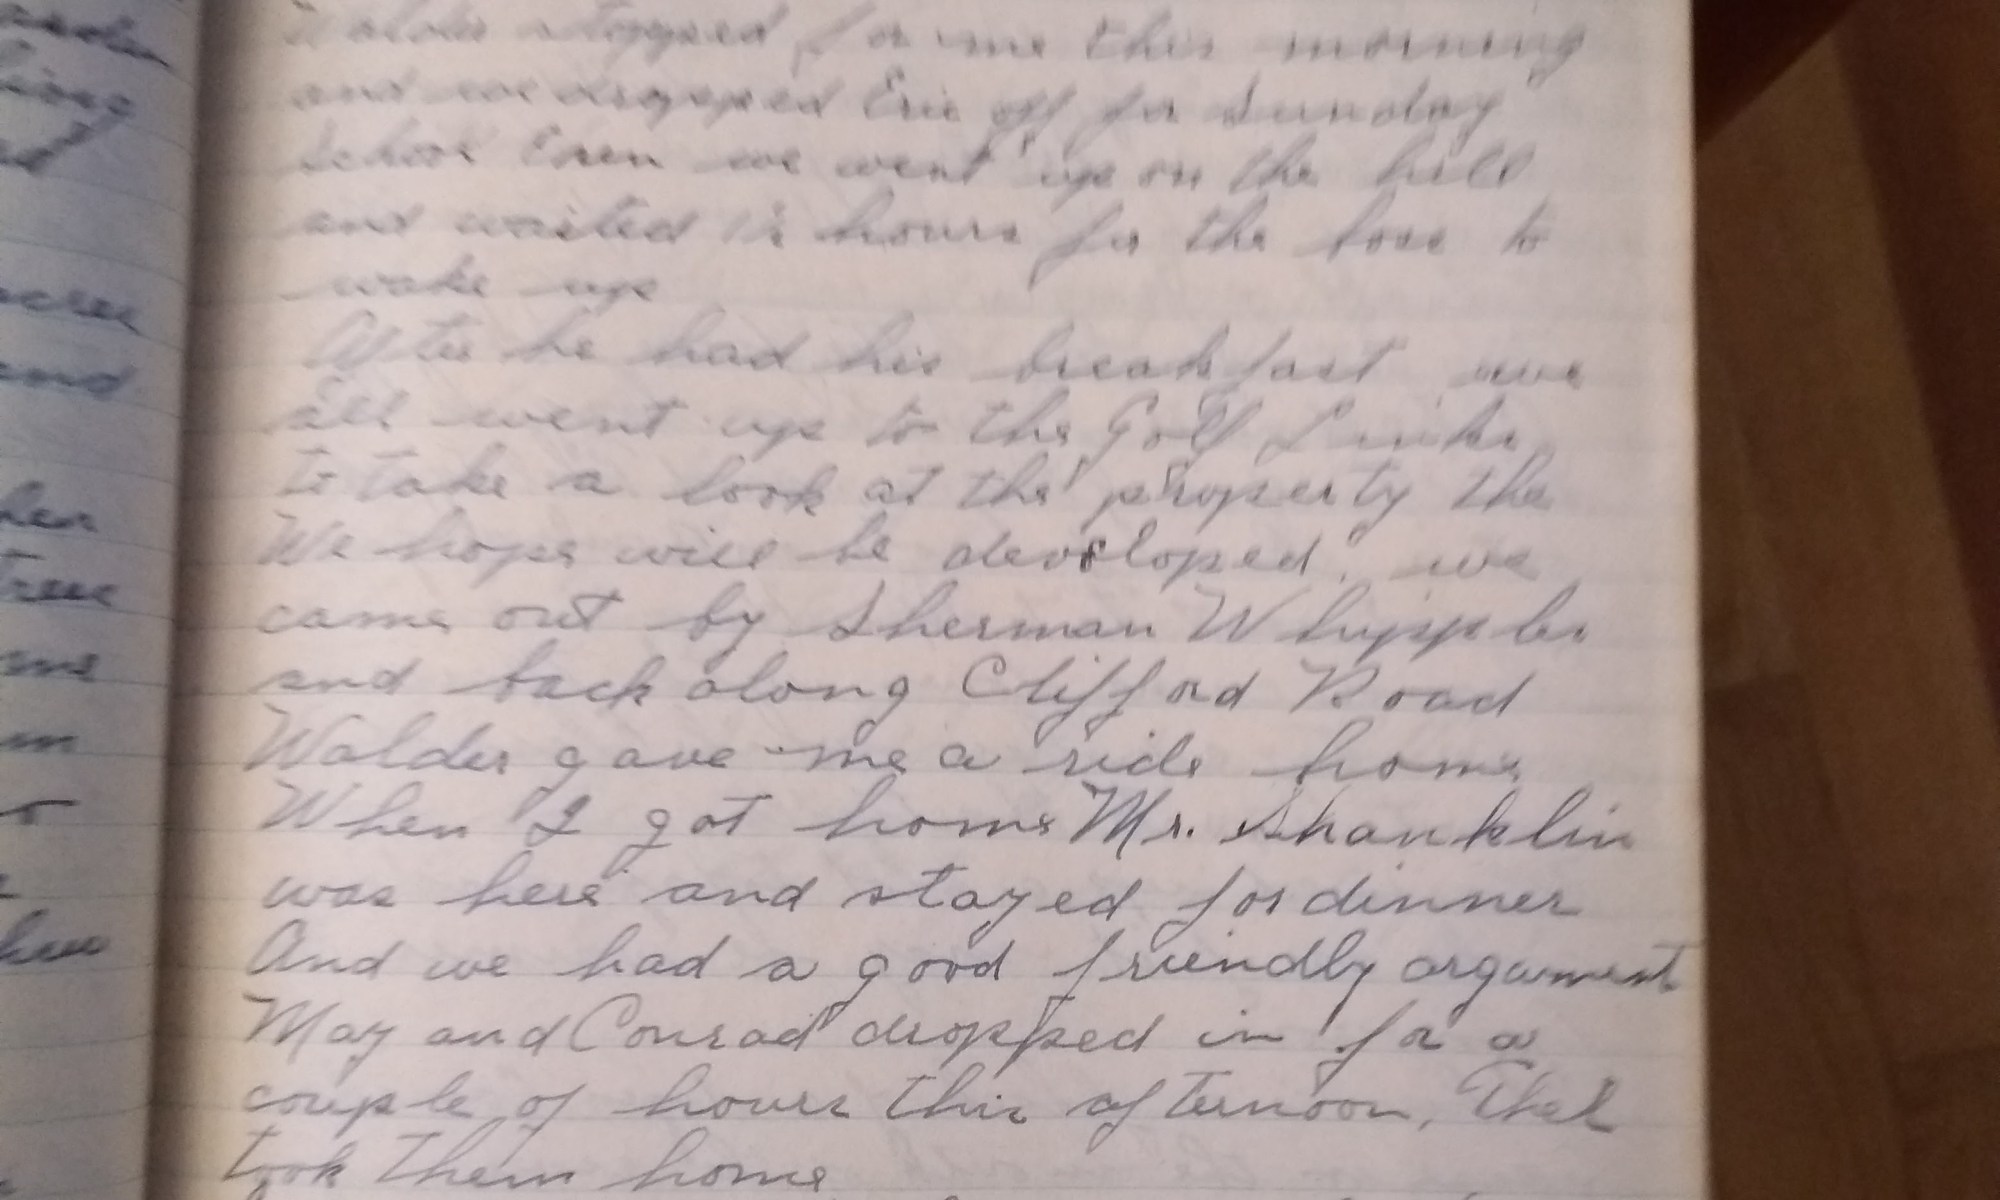 Walder stopped for me this morning
and we dropped Eric off for Sunday
School then we went up on the hill
and waited 1½ hours for the boss to
wake up
After he had his breakfast we
all went up to the Golf Links
to take a look at the property the
We hope will be developed. we
came out by Sherman Whipples
and back along Clifford Road
Walder gave me a ride home
When I got home Mr. Shanklin
was here and stayed for dinner
And we had a good friendly argument
May and Conrad dropped in for a
couple of hours this afternoon, Thel
took them home